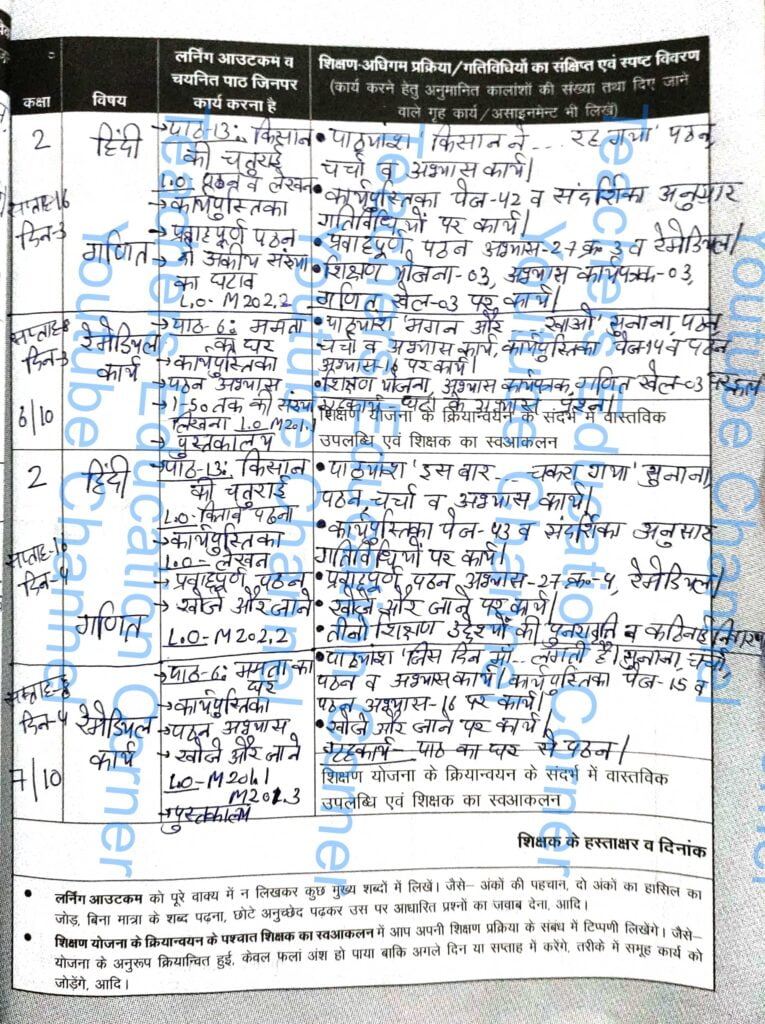 कक्षा
विषय
लर्निंग आउटकम व
चयनित पाठ जिनपर
कार्य करना है
शिक्षण-अधिगम प्रक्रिया/गतिविधियों का संक्षिप्त एवं स्पष्ट विवरण
(कार्य करने हेतु अनुमानित कालांशों की संख्या तथा दिए जाने
वाले गृह कार्य/असाइनमेन्ट भी लिखें)
2
हिंदी
→ पाठ-13: किसान
की चतुराई
L.O- पठन व लेखन
→ कार्यपुस्तिका
→ प्रवाहपूर्ण पठन
• पाठ्यांश 'किसान ने ... रह गया' पठन,
चर्चा व अभ्यास कार्य।
• कार्यपुस्तिका पेज-42 व संदर्शिका अनुसार
गतिविधियों पर कार्य।
• प्रवाहपूर्ण पठन अभ्यास-27 क्र. 3 व रेमेडियल।
सप्ताह-16
दिन-3
गणित
→ दो अंकीय संख्या
का घटाव
L.O- M202.2
• शिक्षण योजना-03, अभ्यास कार्यपत्रक-03,
गणित खेल-03 पर कार्य।
सप्ताह-8
दिन-3
6/10
रेमेडियल
कार्य
→ पाठ-6: ममता
का घर
→ कार्यपुस्तिका
→ पठन अभ्यास
→ 1-50 तक की संख्या
लिखना L.O- M201.1
→ पुस्तकालय
• पाठ्यांश 'मगन और ... खाओ' सुनाना, पठन
चर्चा व अभ्यास कार्य, कार्यपुस्तिका पेज-14 व पठन
अभ्यास-16 पर कार्य।
• शिक्षण योजना, अभ्यास कार्यपत्रक, गणित खेल-03 पर कार्य
गृहकार्य- घटाव के अभ्यास प्रश्न।
शिक्षण योजना के क्रियान्वयन के संदर्भ में वास्तविक
उपलब्धि एवं शिक्षक का स्वआकलन
2
हिंदी
→ पाठ-13: किसान
की चतुराई
L.O- किताब पढना
→ कार्यपुस्तिका
L.O- लेखन
→ प्रवाहपूर्ण पठन
• पाठ्यांश 'इस बार ... चकरा गया' सुनाना,
पठन, चर्चा व अभ्यास कार्य।
• कार्यपुस्तिका पेज-43 व संदर्शिका अनुसार
गतिविधियों पर कार्य।
• प्रवाहपूर्ण पठन अभ्यास-27 क्र-4, रेमेडियल।
सप्ताह-16
दिन-4
गणित
→ खोजें और जाने
L.O- M202.2
• खोजें और जाने पर कार्य।
• तीनों शिक्षण उद्देश्यों की पुनरावृति व कठिनाई निवारण
सप्ताह-8
दिन-4
7/10
रेमेडियल
कार्य
→ पाठ-6: ममता का
घर
→ कार्यपुस्तिका
→ पठन अभ्यास
→ खोजें और जाने
L.O- M201.1
M201.3
→ पुस्तकालय
• पाठ्यांश 'जिस दिन माँ ... लगती है' सुनाना, चर्चा,
पठन व अभ्यास कार्य। कार्यपुस्तिका पेज-15 व
पठन अभ्यास-16 पर कार्य।
• खोजें और जाने पर कार्य।
गृहकार्य- पाठ का घर से पठन।
शिक्षण योजना के क्रियान्वयन के संदर्भ में वास्तविक
उपलब्धि एवं शिक्षक का स्वआकलन
शिक्षक के हस्ताक्षर व दिनांक
• लर्निंग आउटकम को पूरे वाक्य में न लिखकर कुछ मुख्य शब्दों में लिखें। जैसे– अंकों की पहचान, दो अंकों का हासिल का
जोड़, बिना मात्रा के शब्द पढ़ना, छोटे अनुच्छेद पढ़कर उस पर आधारित प्रश्नों का जवाब देना, आदि।
• शिक्षण योजना के क्रियान्वयन के पश्चात शिक्षक का स्वआकलन में आप अपनी शिक्षण प्रक्रिया के संबध में टिप्पणी लिखेंगे। जैसे–
योजना के अनुरूप क्रियान्वित हुई, केवल फलां अंश हो पाया बाकि अगले दिन या सप्ताह में करेंगे, तरीके में समूह कार्य को
जोड़ेंगे, आदि।
Teachers Education Corner
Youtube Channel
Teachers Education Corner
Youtube Channel
Teachers Education Corner
Youtube Channel